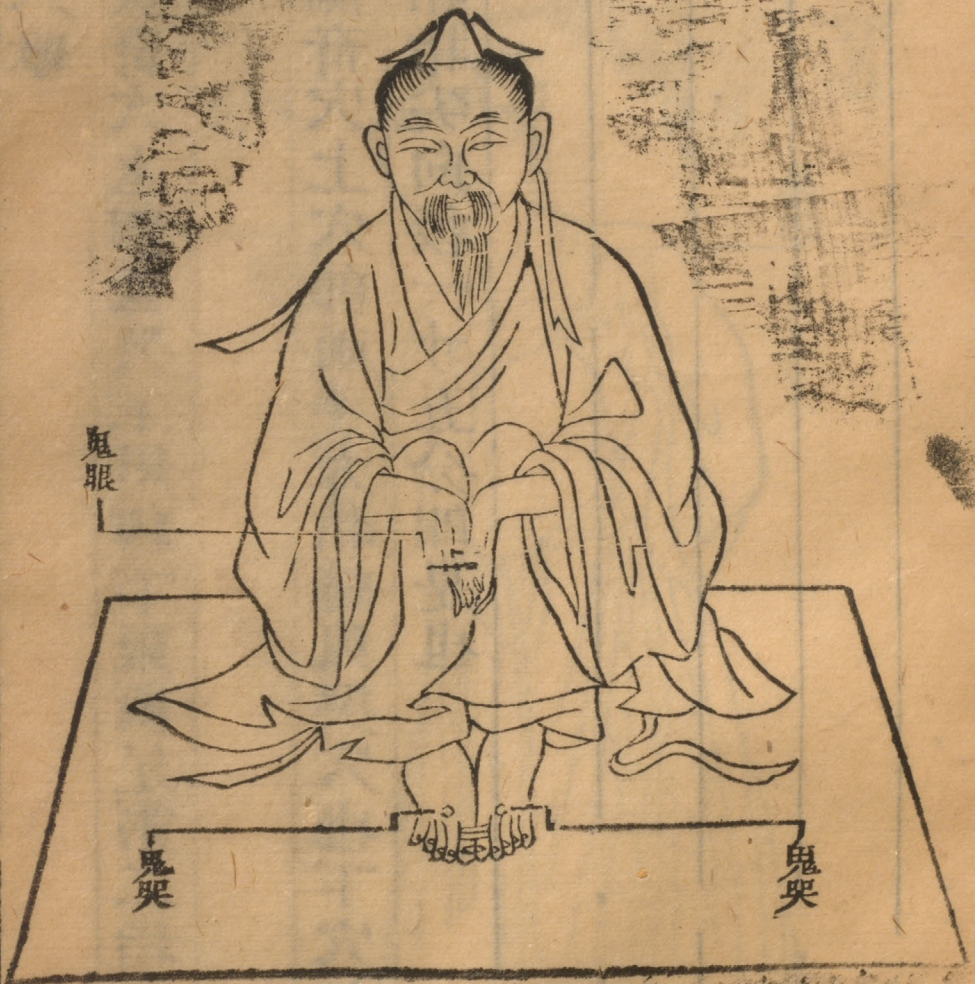 鬼眼
鬼哭
鬼哭